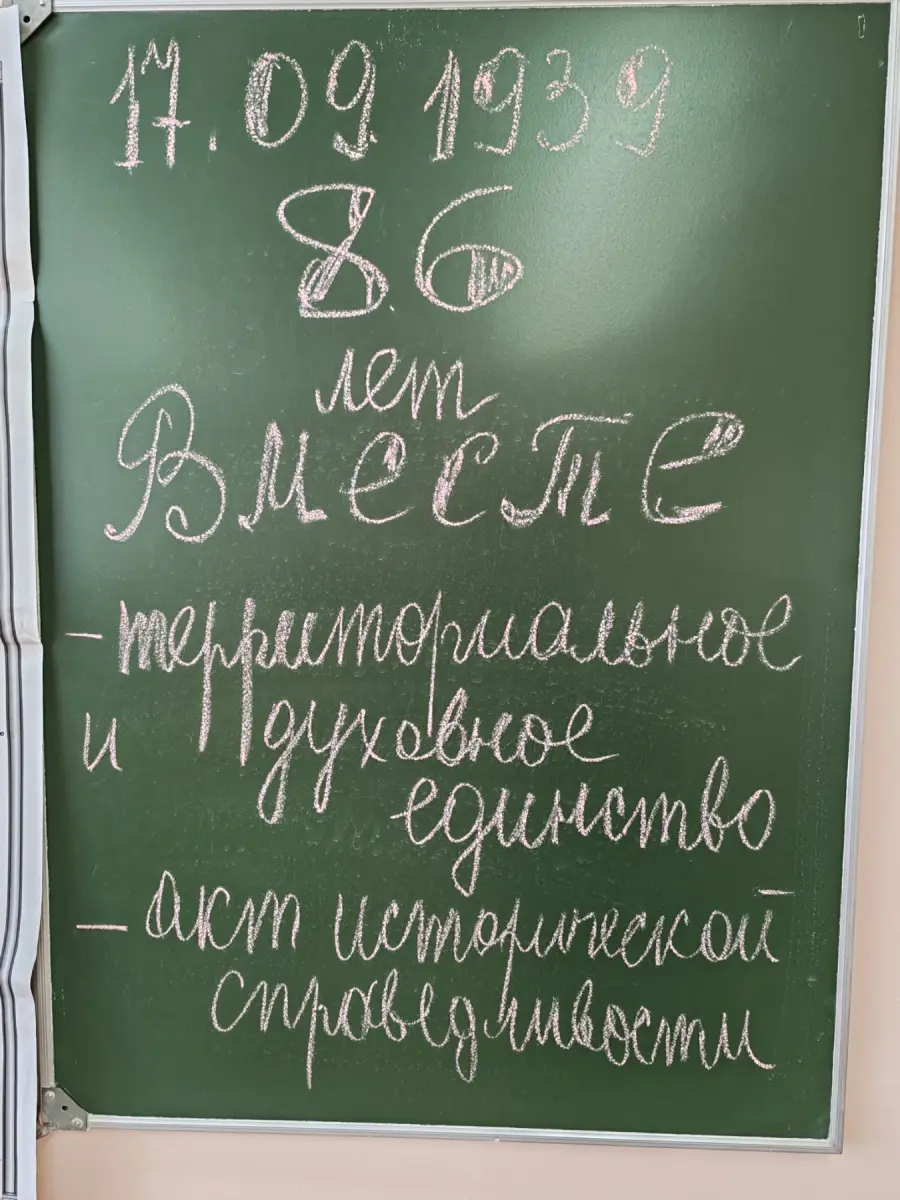 17.09 1939
86
лет
Вместе
- территориальное
и духовное
единство
- акт исторической
справедливости